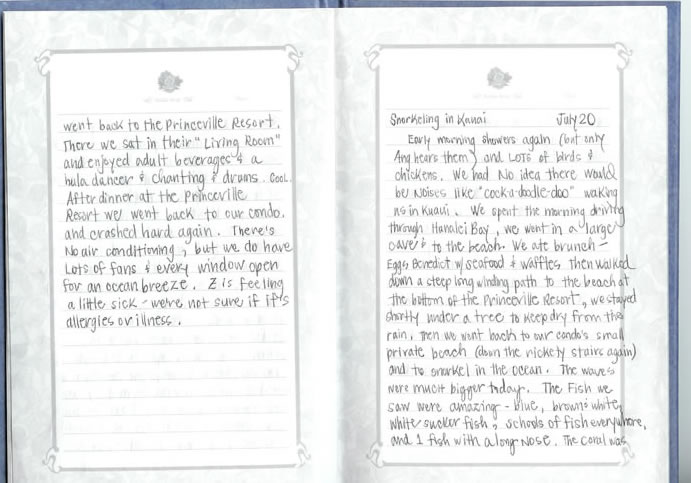 went back to the Princeville Resort.
There we sat in their "Living Room"
and enjoyed adult beverages & a
hula dancer & chanting & drums. Cool.
After dinner at the Princeville
Resort we went back to our condo.
and crashed hard again. There's
No air conditioning, but we do have
Lots of fans & every window open
for an ocean breeze. Z is feeling
a little sick - we're not sure if it's
allergies or illness.
Snorkeling in Kauai July 20
Early morning showers again (but only
Ang hears them) and LOTS of birds &
chickens. We had No idea there would
be Noises like "cock-a-doodle-doo" waking
us in Kauai. We spent the morning driving
through Hanalei Bay, we went in a large
cave & to the beach. We ate brunch -
Eggs Benedict w/ seafood & waffles Then walked
down a steep long winding path to the beach at
the bottom of the Princeville Resort, we stayed
shortly under a tree to keep dry from the
rain. Then we went back to our condo's small
private beach (down the rickety stairs again)
and to snorkel in the ocean. The waves
were much bigger today. The Fish we
saw were amazing - blue, brown & white,
white sucker fish, schools of fish everywhere,
and 1 fish with a long Nose. The Coral was